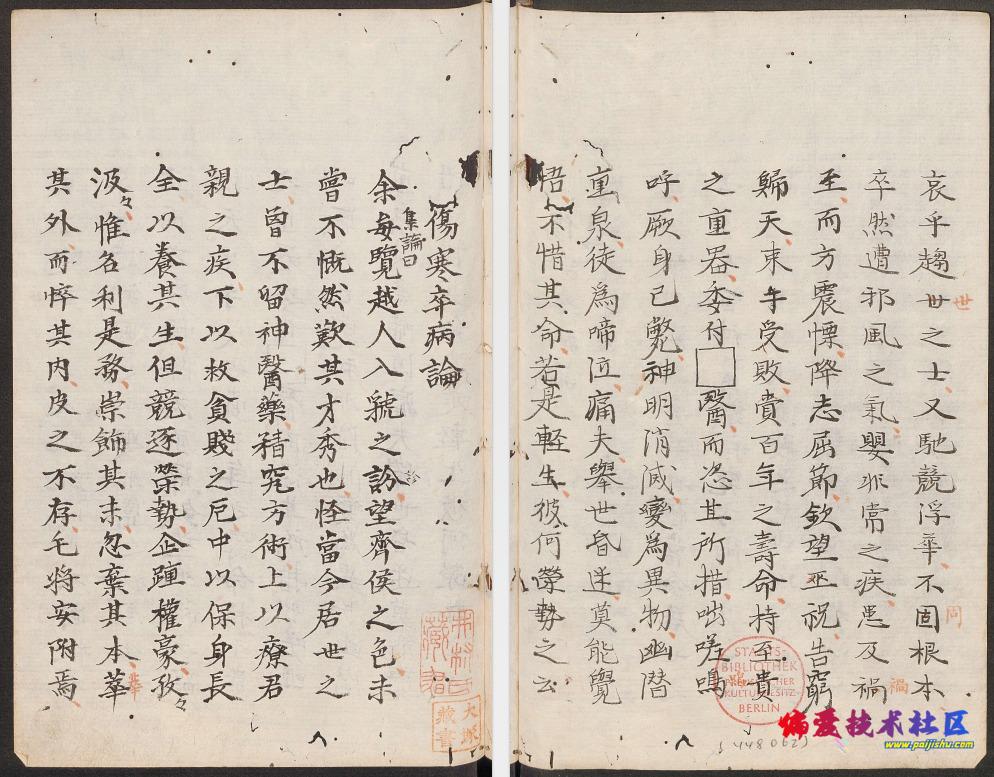 哀乎趨世之士又馳競浮華不固根本
世
同
卒然遭邪風之氣嬰非常之疾患及禍
禍
至而方震慄降志屈節欽望巫祝告窮
歸天束手受敗賫百年之壽命持至貴
之重器委付囗醫而恣其所措咄嗟嗚
呼厥身已斃神明消滅變為異物幽潛
重泉徒為啼泣痛夫舉世昏迷莫能覺
悟不惜其命若是輕生彼何榮勢之云
傷寒卒病論
集論曰
余每覽越人入虢之訟望齊侯之色未
診
嘗不慨然歎其才秀也怪當今居世之
士曾不留神醫藥精究方術上以療君
親之疾下以救貧賤之厄中以保身長
全以養其生但競逐榮勢企踵權豪孜々
汲々惟名利是務崇飾其末忽棄其本華
華
其外而悴其内皮之不存毛將安附焉
STAATS-
BIBLIOTHEK
KULTURBESITZ
BERLIN
大塚
藏書
偏爱技术社区
www.paijishu.com